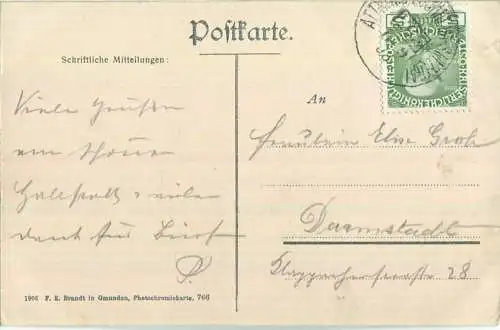 Postkarte.
Schriftliche Mitteilungen:
An
Viele Grüße
vom schönen
Hallstatt, vielen
Dank für Brief
P.
Fräulein Elise Groß
Darmstadt
28
1906 F. E. Brandt in Gmunden, Photochromiekarte, 766